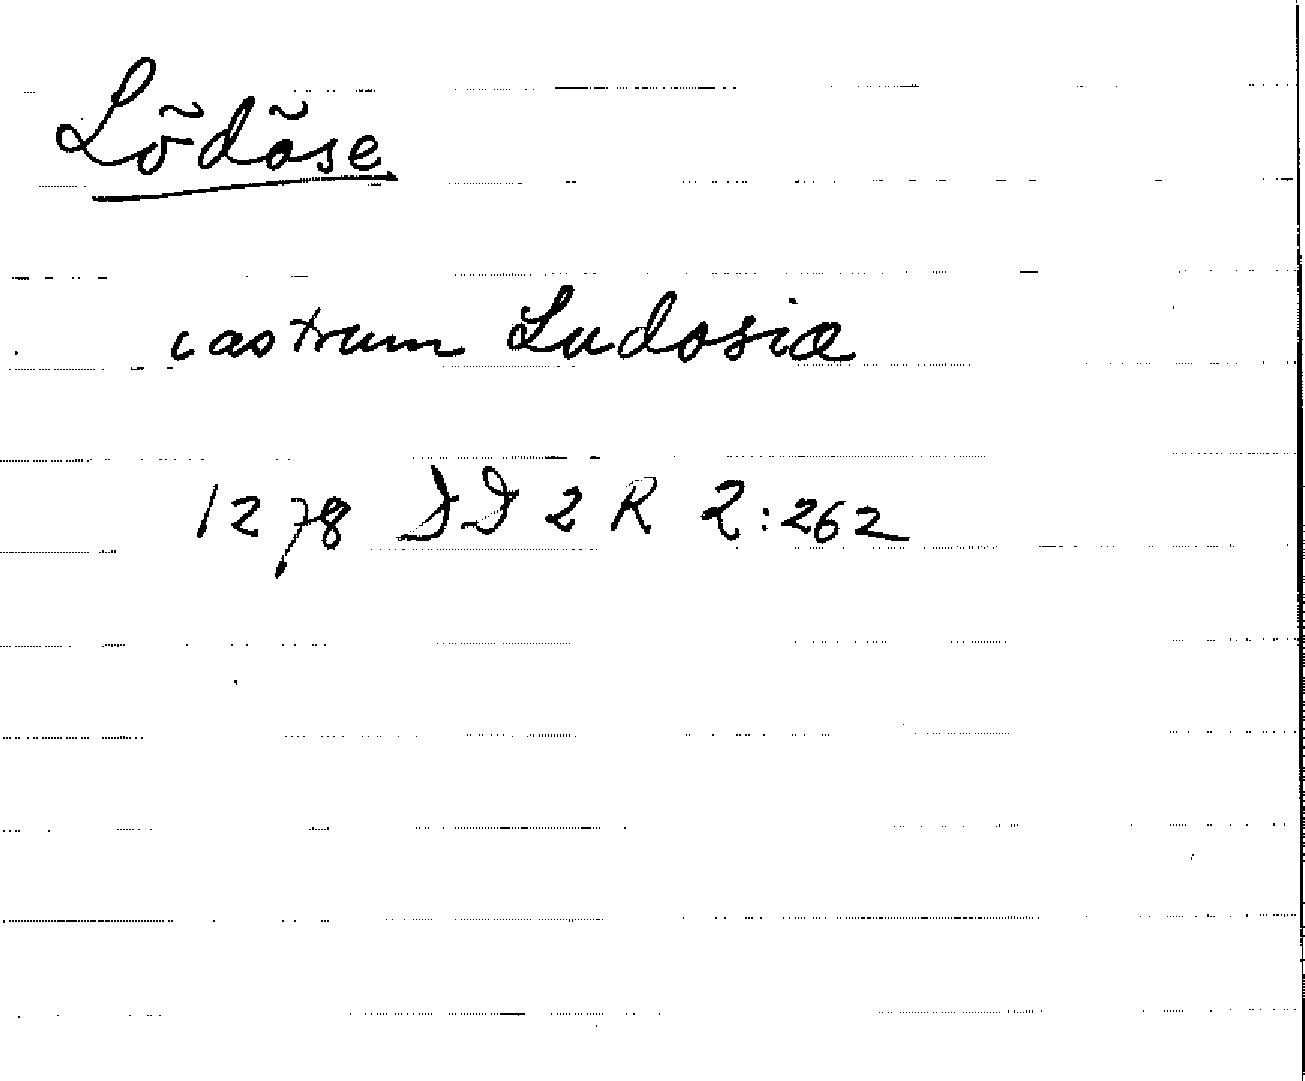 Lödöse
castrum Ludosiæ
1278 DD 2 R 2:262